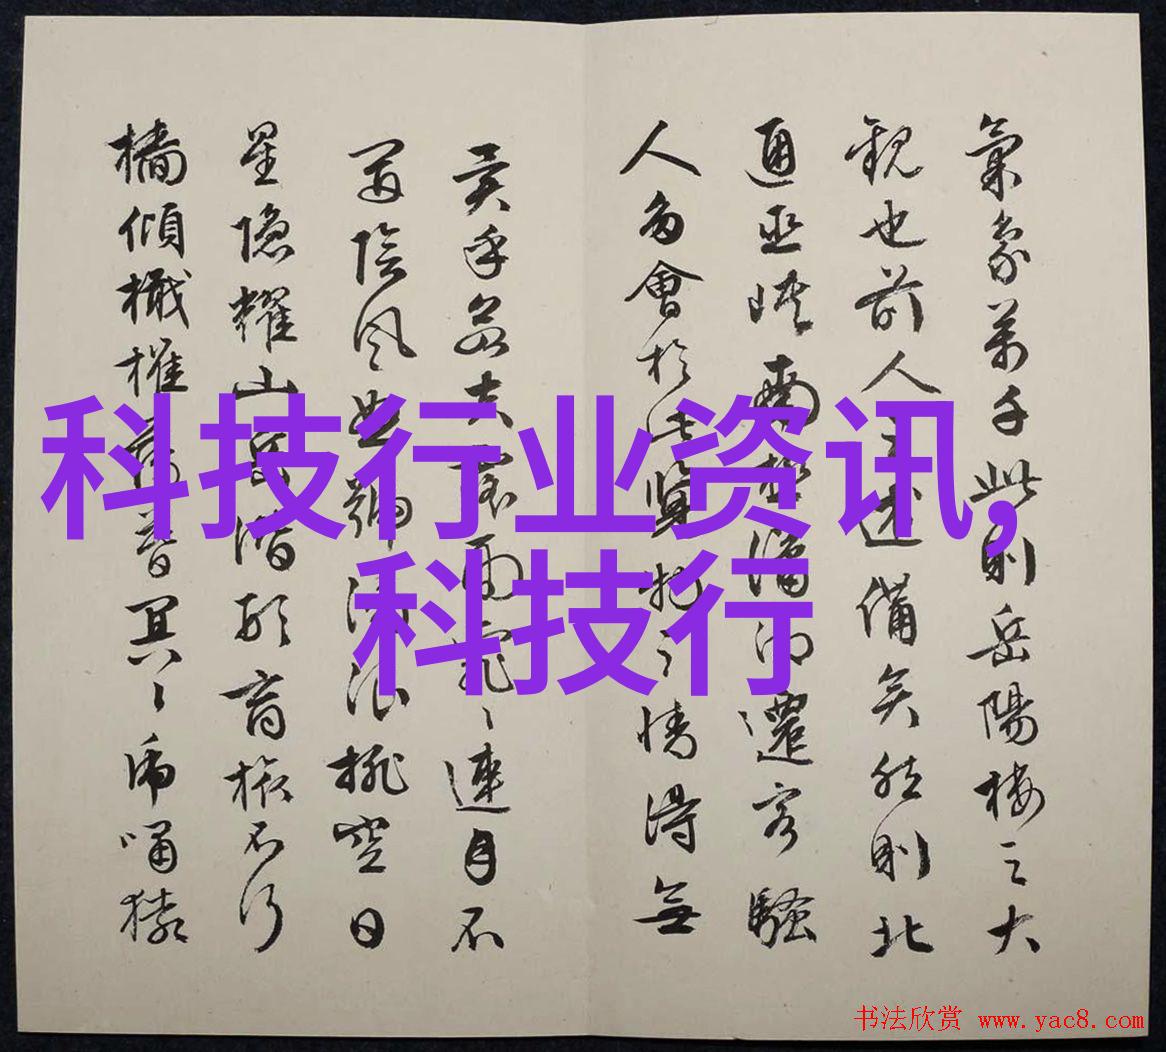 氣象萬千此則岳陽樓之大
觀也前人之述備矣然則北
通巫峽南極瀟湘遷客騷
人多會於此覽物之情得無
異乎若夫霪雨霏〻連月不
開陰風怒號濁浪排空日
星隱耀山岳潛形商旅不行
檣傾檝摧薄暮冥〻虎嘯猿
科技行业资讯,
科技行
书法欣赏 www.yac8.com